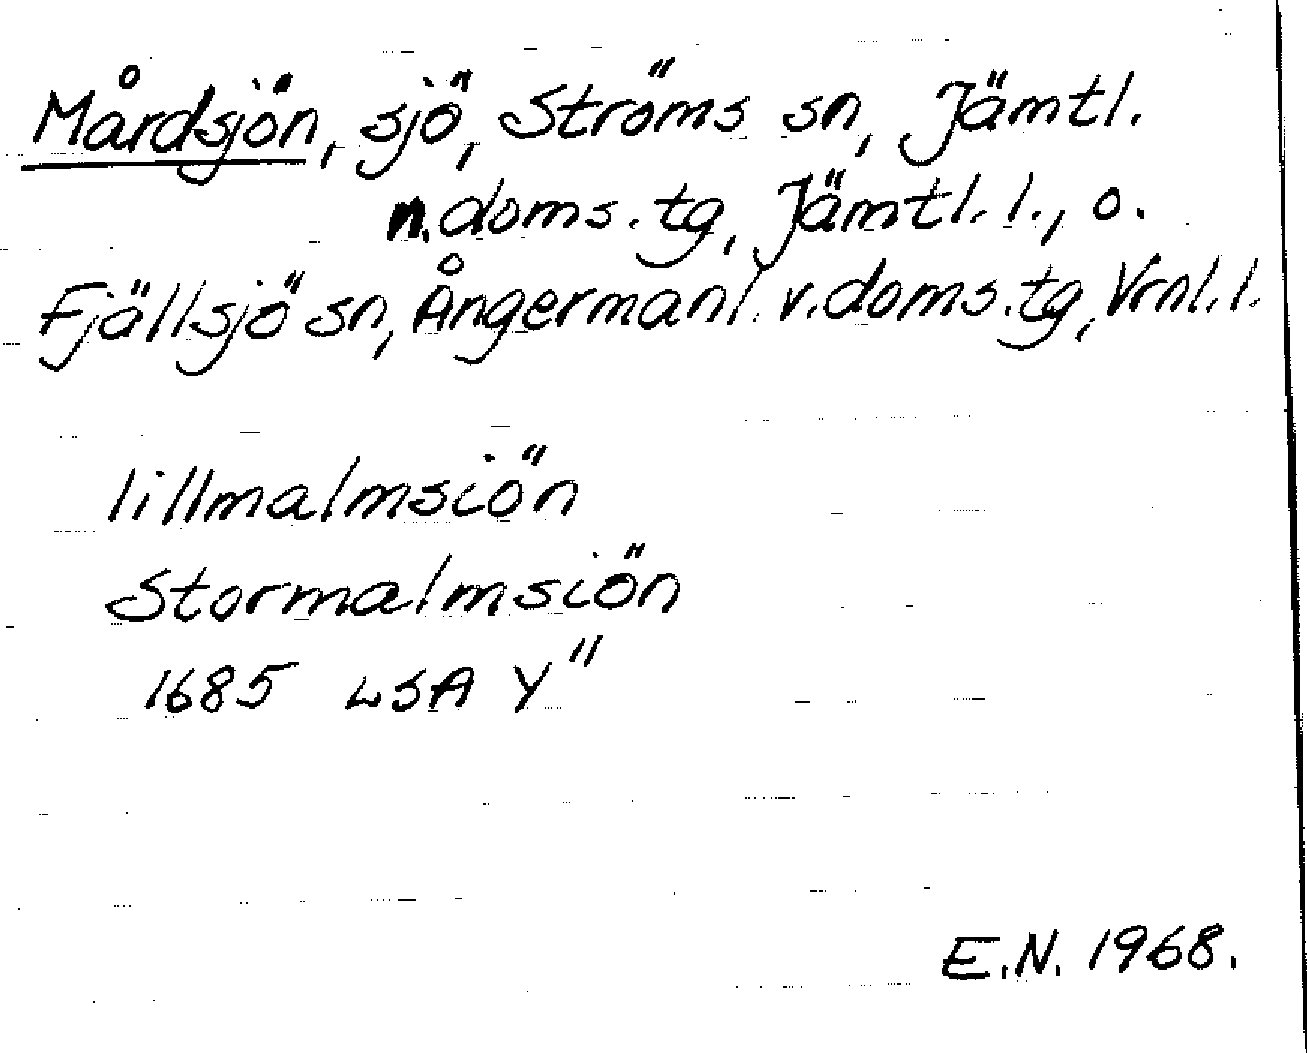 Mårdsjön, sjö, Ströms sn, Jämtl.
n. doms. tg, Jämtl. l., o.
Fjällsjö sn, Ångermanl. v. doms. tg, Vrnl. l.
lillmalmsiön
Stormalmsiön
1685 LSA Y"
E.N. 1968.